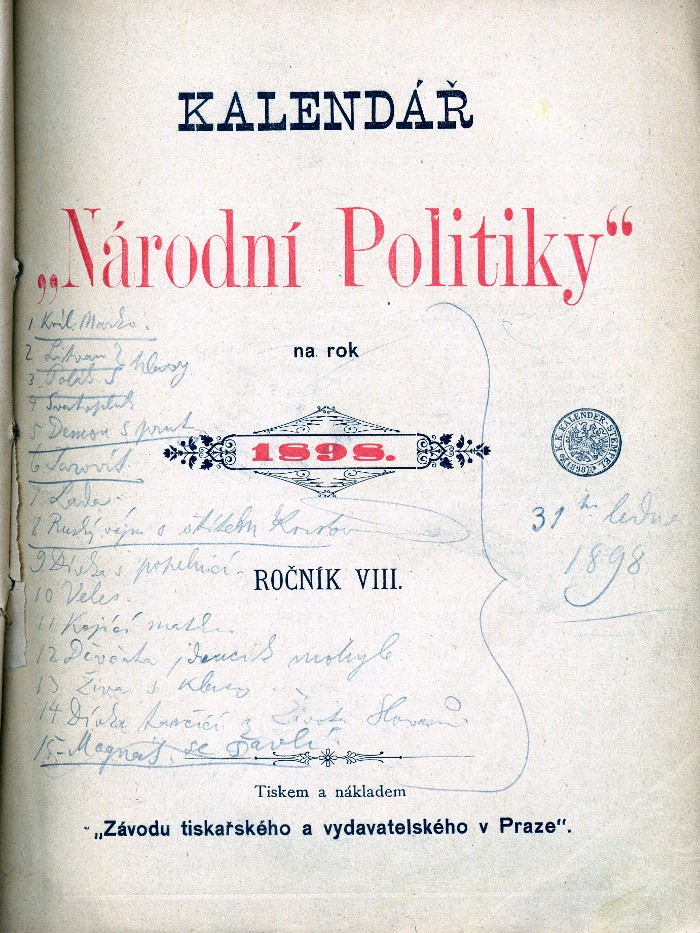 KALENDÁŘ
„Národní Politiky“
1 Král. Marko.
na rok
2
3 Polák S klasy
4 Svatopluk
5 Demon S
1898.
K. K. KALENDER-STEMPEL 1898
6
7 Lada.
8 Ruský s štítem
31 ho ledna
1898
9 Dívka s popelnicí.
ROČNÍK VIII.
10 Veles.
11 Kojící matka
12 Děvčátka mohyle
13 Živa s klasy
14 Dívka tančící z Života Slovanů
15 Magnát se šavlí.
Tiskem a nákladem
„Závodu tiskařského a vydavatelského v Praze“.